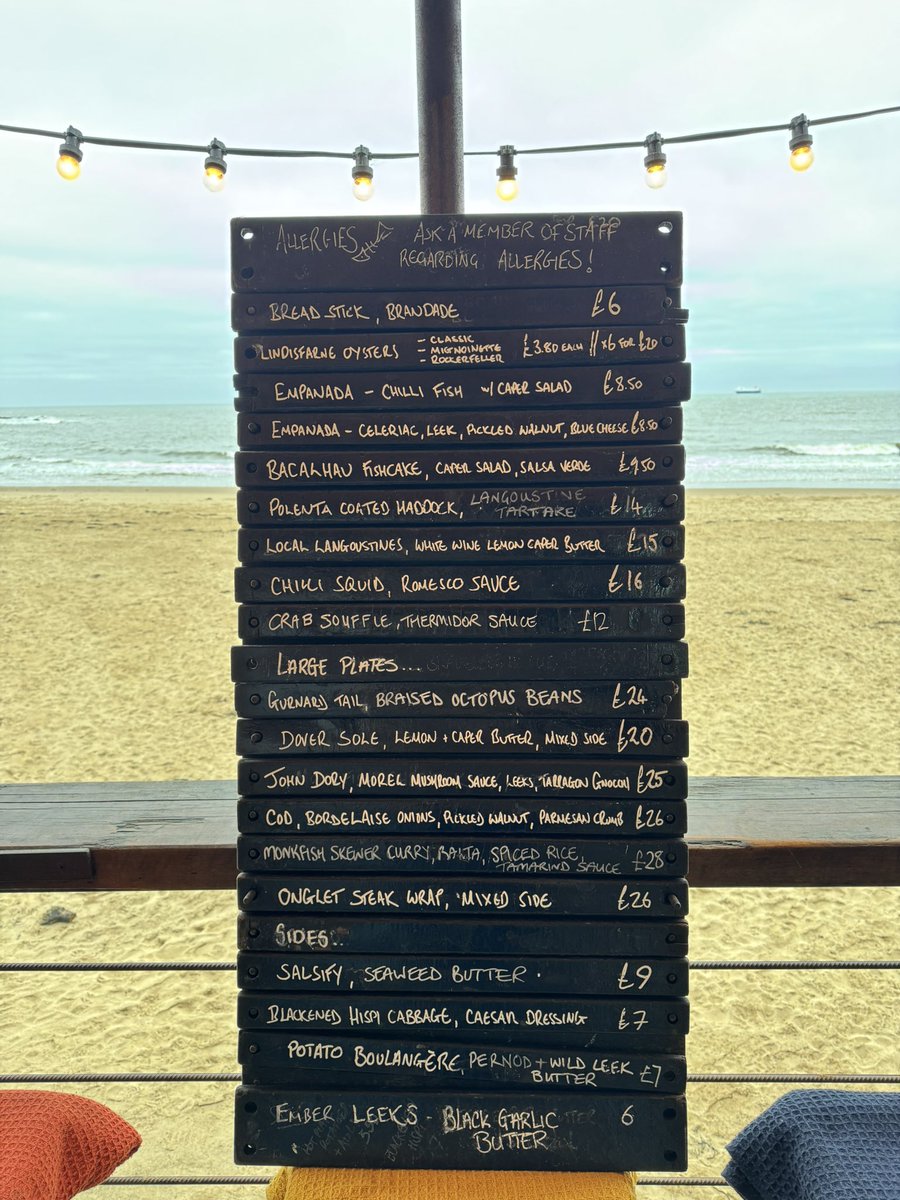 ALLERGIES ASK A MEMBER OF STAFF
REGARDING ALLERGIES!
BREAD STICK, BRANDADE £6
LINDISFARNE OYSTERS - CLASSIC - MIGNOINETTE - ROCKERFELLER £3.80 EACH // x6 FOR £20
EMPANADA - CHILLI FISH W/ CAPER SALAD £8.50
EMPANADA - CELERIAC, LEEK, PICKLED WALNUT, BLUE CHEESE £8.50
BACALHAU FISHCAKE, CAPER SALAD, SALSA VERDE £9.50
POLENTA COATED HADDOCK, LANGOUSTINE TARTARE £14
LOCAL LANGOUSTINES, WHITE WINE LEMON CAPER BUTTER £15
CHILLI SQUID, ROMESCO SAUCE £16
CRAB SOUFFLE, THERMIDOR SAUCE £12
LARGE PLATES...
GURNARD TAIL, BRAISED OCTOPUS BEANS £24
DOVER SOLE, LEMON + CAPER BUTTER, MIXED SIDE £20
JOHN DORY, MOREL MUSHROOM SAUCE, LEEKS, TARRAGON GNOCCHI £25
COD, BORDELAISE ONIONS, PICKLED WALNUT, PARMESAN CRUMB £26
MONKFISH SKEWER CURRY, RAITA, SPICED RICE, TAMARIND SAUCE £28
ONGLET STEAK WRAP, MIXED SIDE £26
SIDES..
SALSIFY, SEAWEED BUTTER. £9
BLACKENED HISPI CABBAGE, CAESAR DRESSING £7
POTATO BOULANGERE, PERNOD + WILD LEEK BUTTER £7
EMBER LEEKS - BLACK GARLIC BUTTER 6